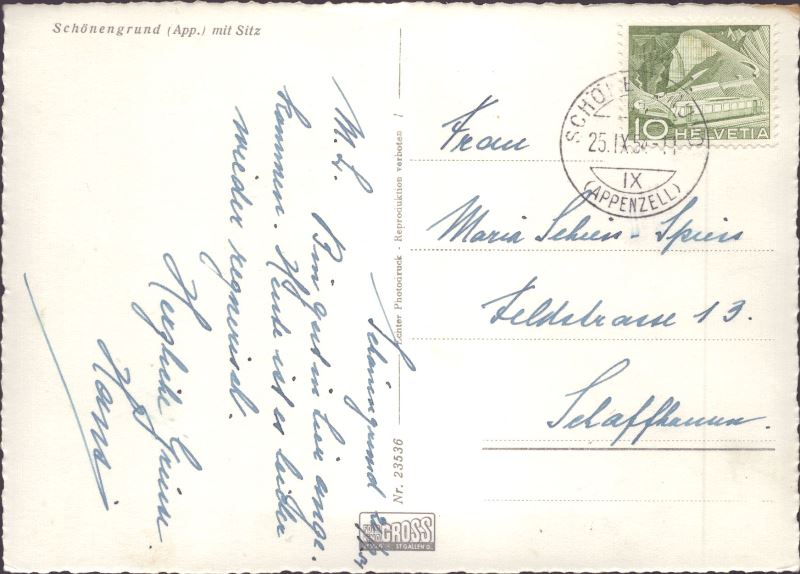 Schönengrund (App.) mit Sitz
Schönengrund
M. L.
Bin gut in hier ange-
kommen. Heute ist es leider
wieder regnerisch.
Herzliche Grüsse
Hansi
Echter Photodruck - Reproduktion verboten !
Nr. 23536
GROSS
ST. GALLEN
10 HELVETIA
SCHÖNENGRUND
25.IX.54-11
IX
(APPENZELL)
Frau
Maria Schiess-Spiess
Feldstrasse 13.
Schaffhausen.